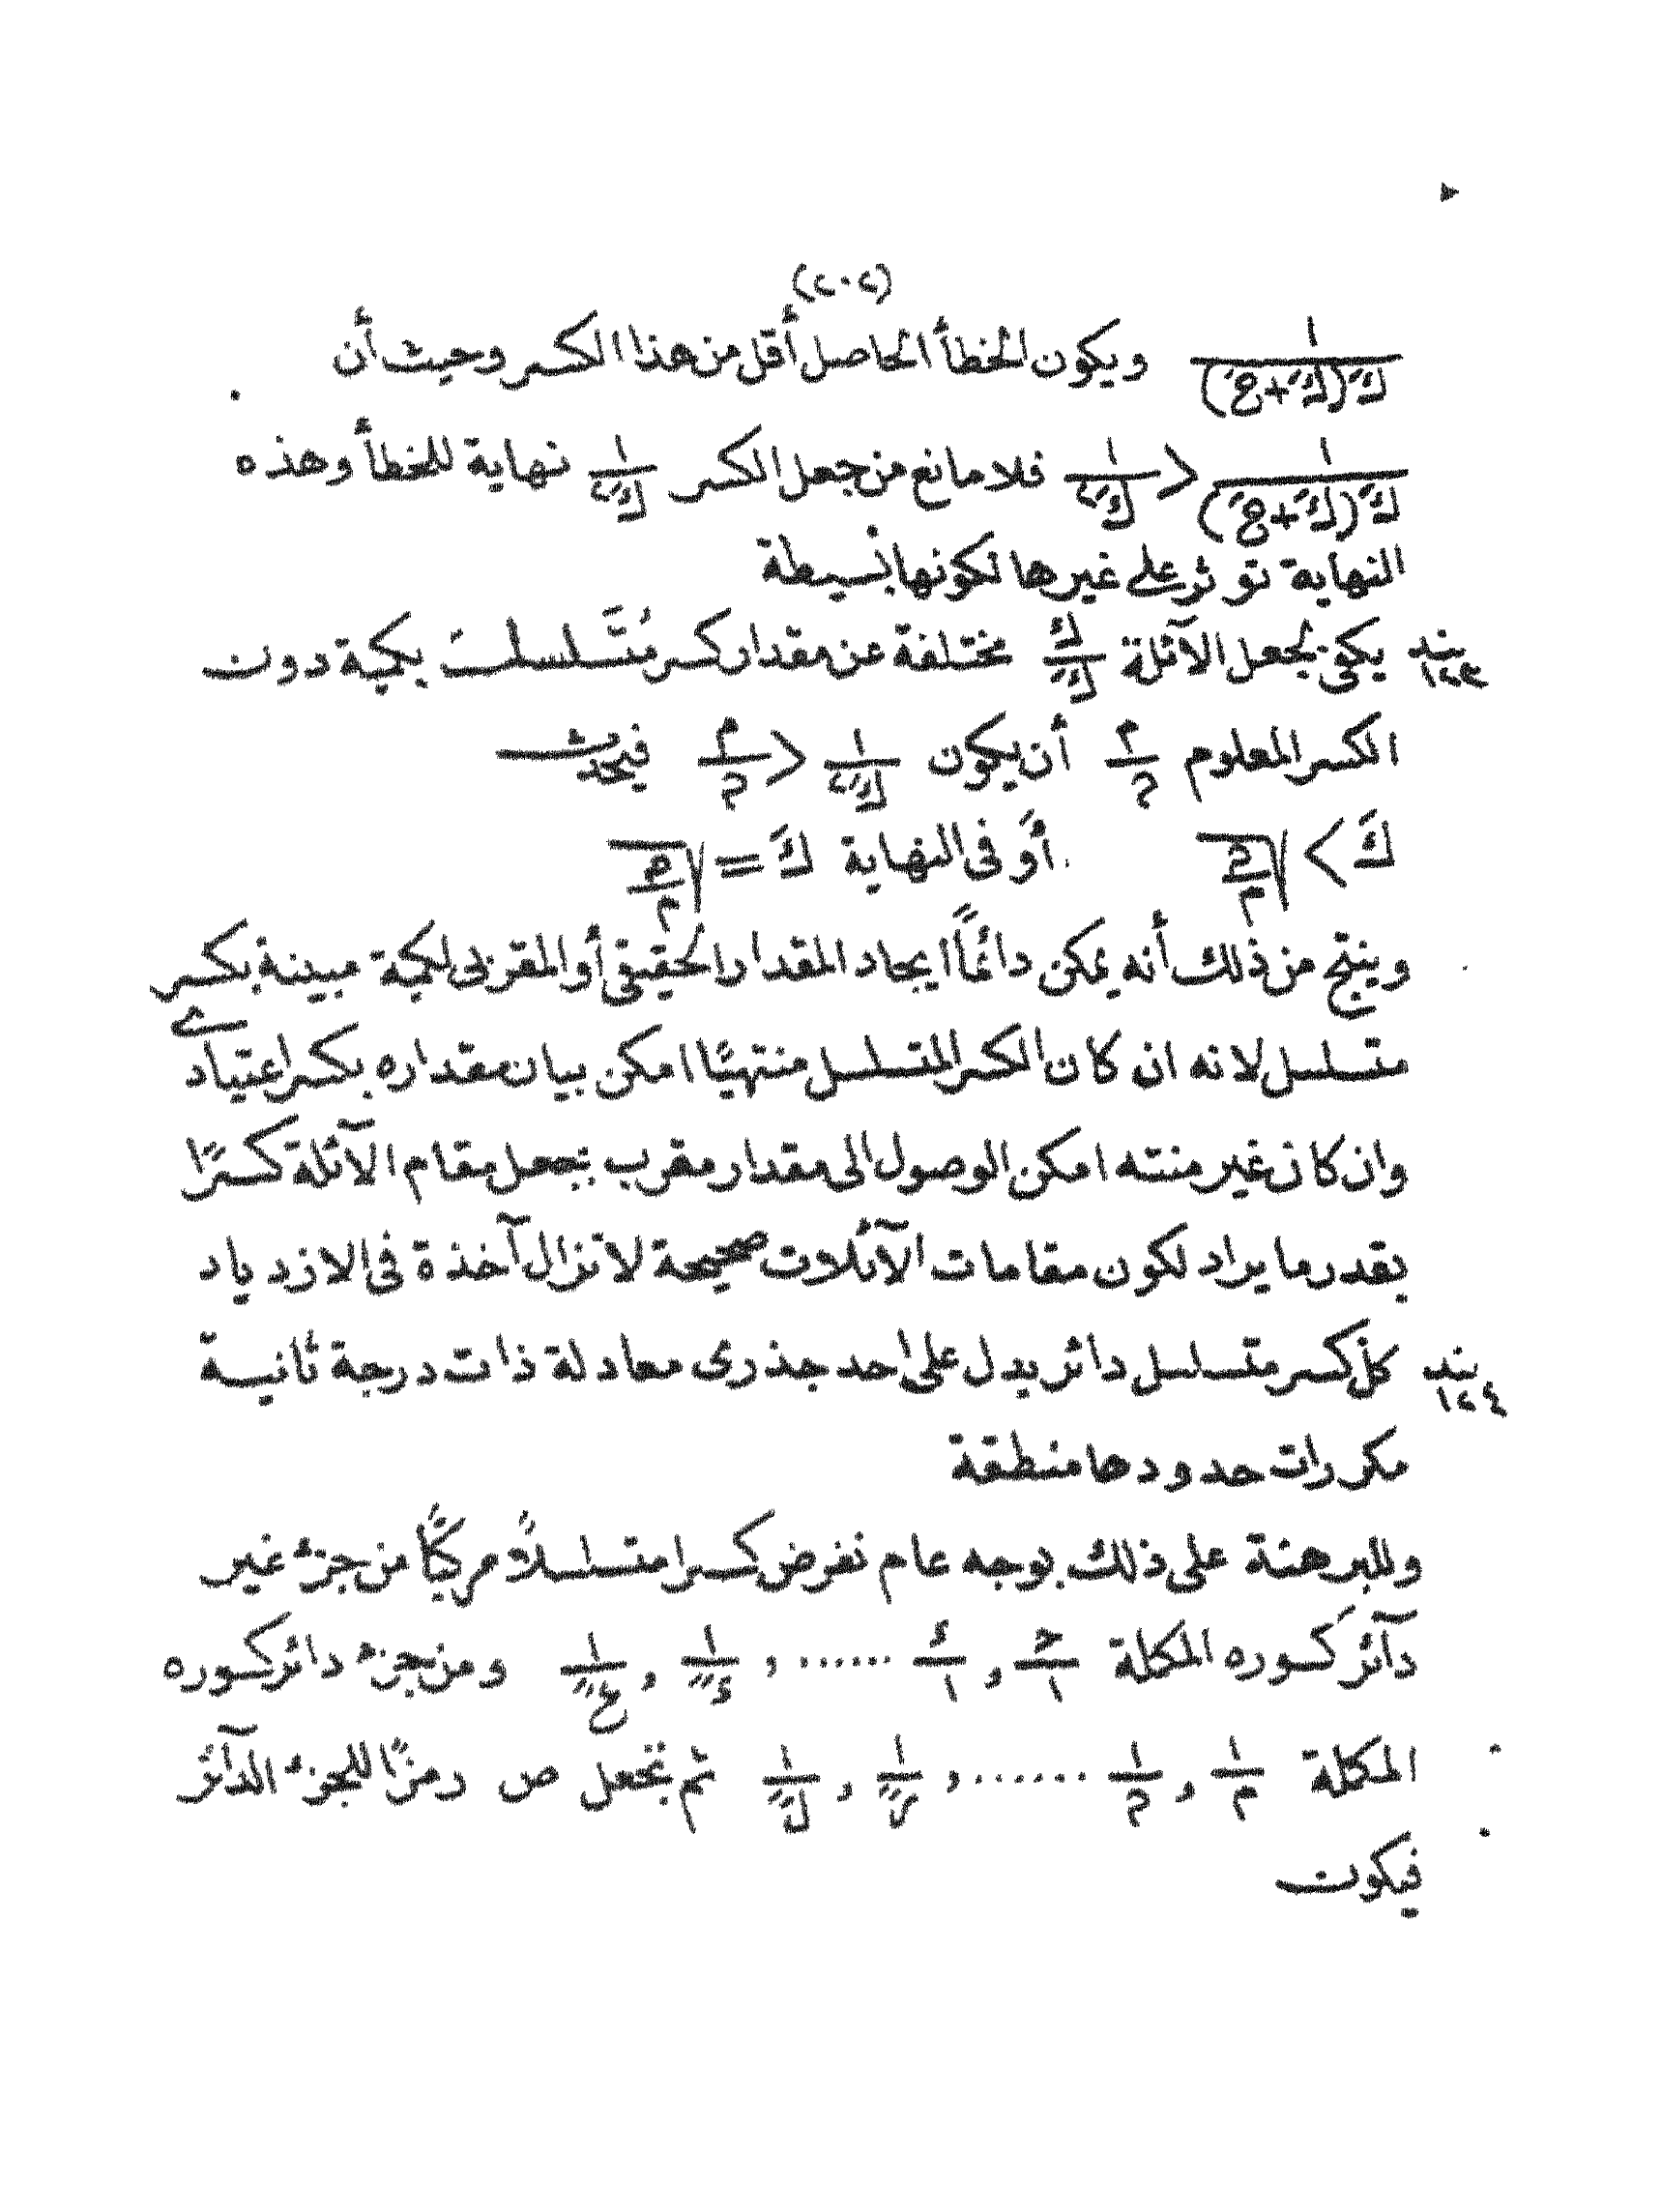 (٢٠٢)
١/ك(ك+ع) ويكون الخطأ الحاصل أقل من هذا الكسر وحيث أن
١/ك(ك+ع) < ١/ك٢ فلا مانع من جعل الكسر ١/ك٢ نهاية للخطأ وهذه
النهاية تو ثر على غيرها لكونها بسيطة
بند ١٢٣ يكفى لجعل الآئلة ك/ك مختلفة عن مقدار كسر مُتَسلسل بكمية دون
الكسر المعلوم م/ن أن يكون ١/ك٢ < م/ن فيحدث
ك > √ن/م أو فى النهاية ك = √ن/م
وينتج من ذلك أنه يمكن دائماً ايجاد المقدار الحقيقى أو المقربى لكمية مبينة بكسر
متسلسل لانه ان كان الكسر المتسلسل منتهيًا امكن بيان مقداره بكسر اعتيادے
وان كان غير منته امكن الوصول الى مقدار مقرب بجعل مقام الآئلة كسرًا
بقدر ما يراد لكون مقامات الآئلات صحيحة لا تزال آخذة فى الازدياد
بند ١٢٤ كلّ كسر متسلسل دائر يدل على احد جذرى معادلة ذات درجة ثانيـة
مكررات حدودها منطقة
وللبرهنة على ذلك بوجه عام نفرض كسرا متسلسلاً مركبًا من جزء غير
دآئر كسوره المكملة ح/١ , ء/١ ...... , ١/ء , ١/غ ومن جزء دائر كسوره
المكملة ١/م , ١/ن ...... , ١/ر , ١/ل ثم نجعل ص رمزًا للجزء الدآئر
فيكون